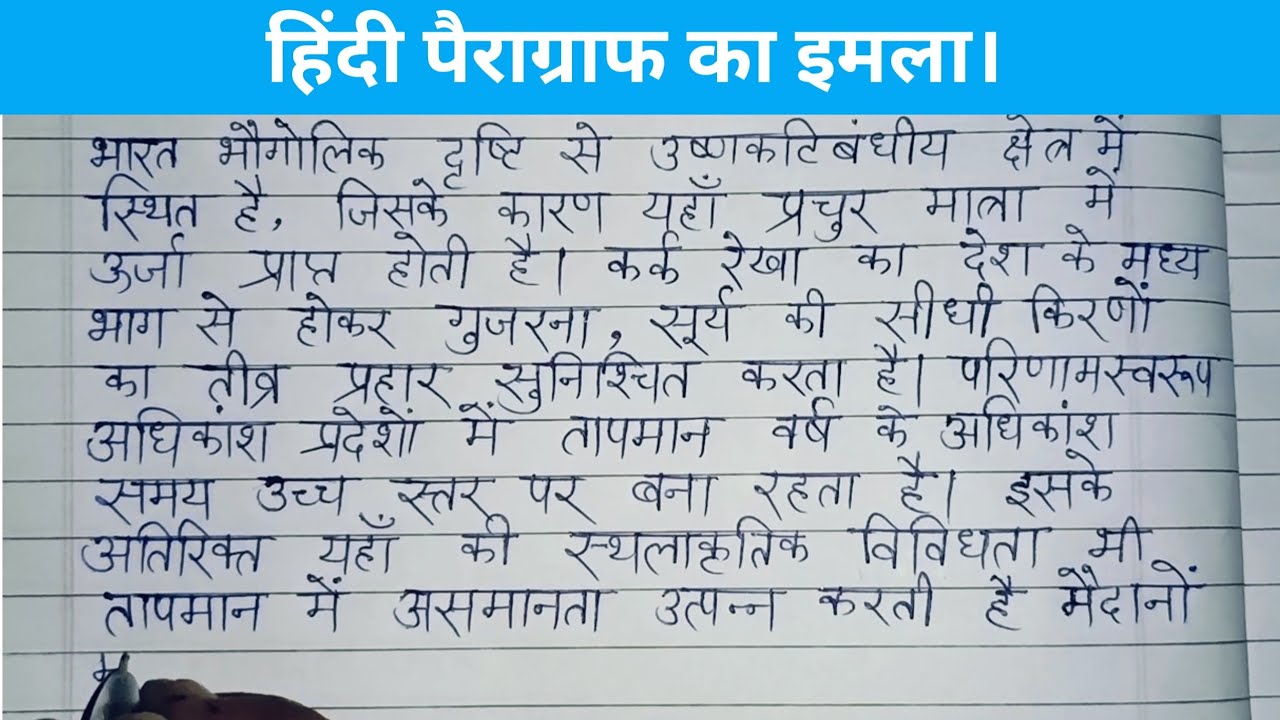 हिंदी पैराग्राफ का इमला।
भारत भौगोलिक दृष्टि से उष्णकटिबंधीय क्षेत्र में
स्थित है, जिसके कारण यहाँ प्रचुर मात्रा में
ऊर्जा प्राप्त होती है। कर्क रेखा का देश के मध्य
भाग से होकर गुजरना, सूर्य की सीधी किरणों
का तीव्र प्रहार सुनिश्चित करता है। परिणामस्वरूप
अधिकांश प्रदेशों में तापमान वर्ष के अधिकांश
समय उच्च स्तर पर बना रहता है। इसके
अतिरिक्त यहाँ की स्थलाकृतिक विविधता भी
तापमान में असमानता उत्पन्न करती है मैदानों